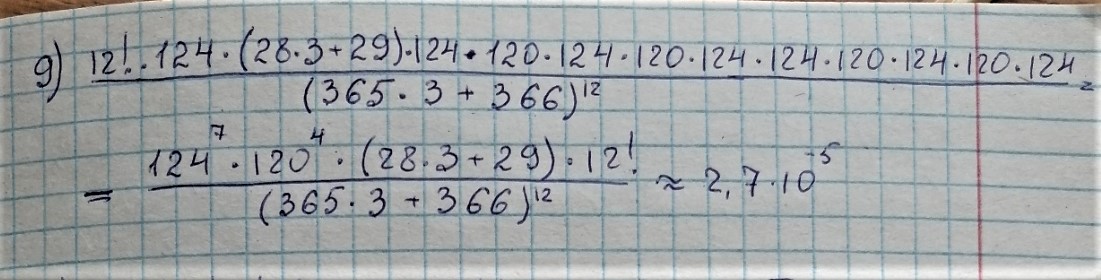 9) 12!·124·(28·3+29)·124·120·124·120·124·124·120·124·120·124
(365·3+366)¹² =
= 124⁷·120⁴·(28·3+29)·12! ≈ 2,7·10⁻⁵
(365·3+366)¹²